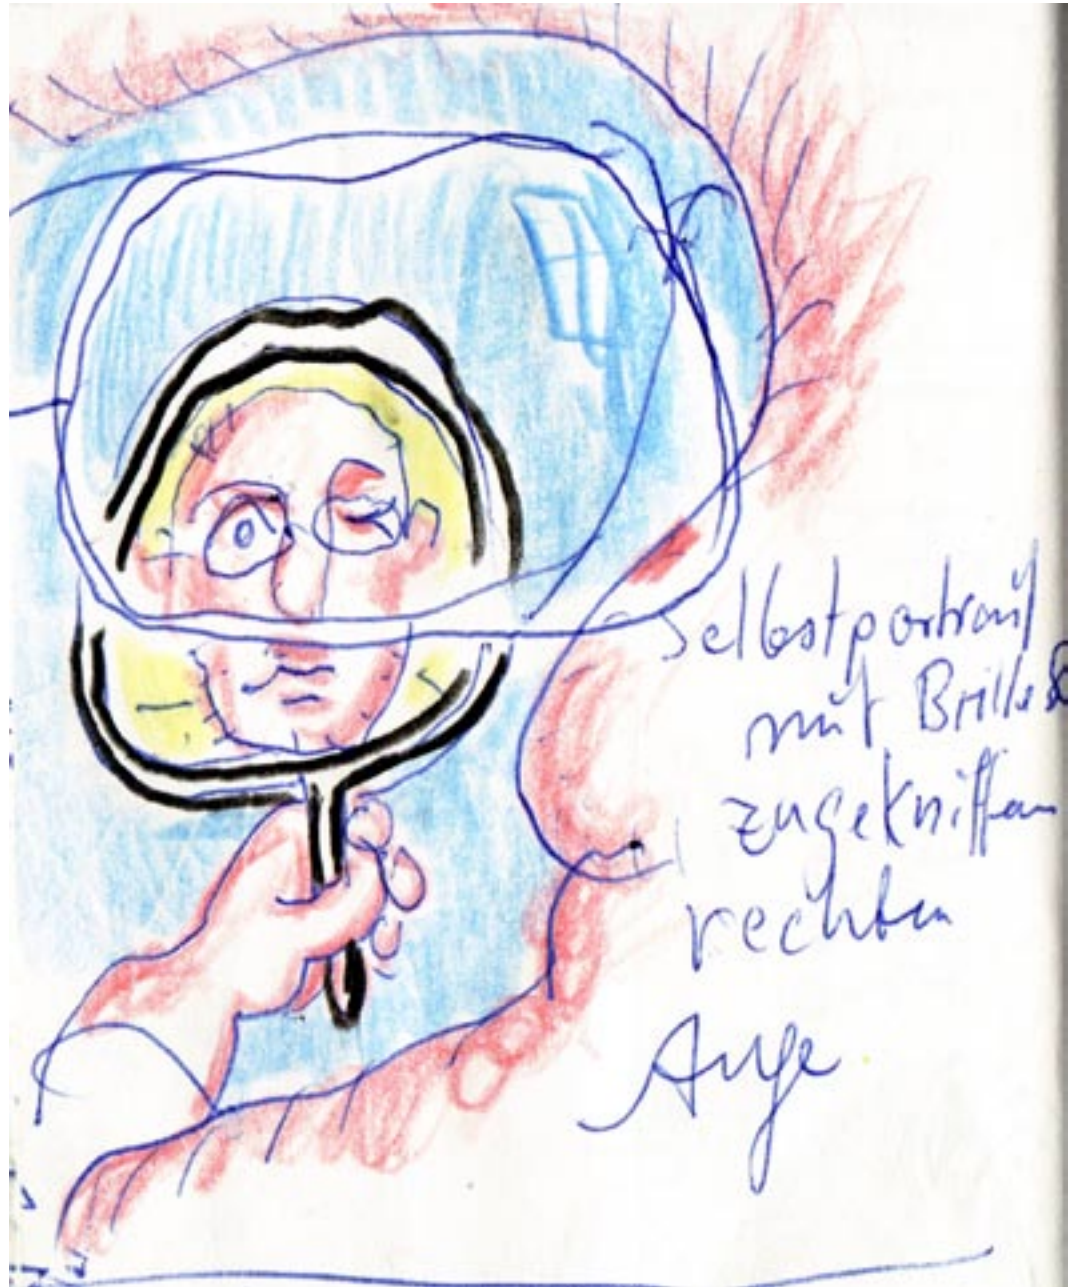 Selbstportrait
mit Brille &
zugekniffen
rechten
Auge